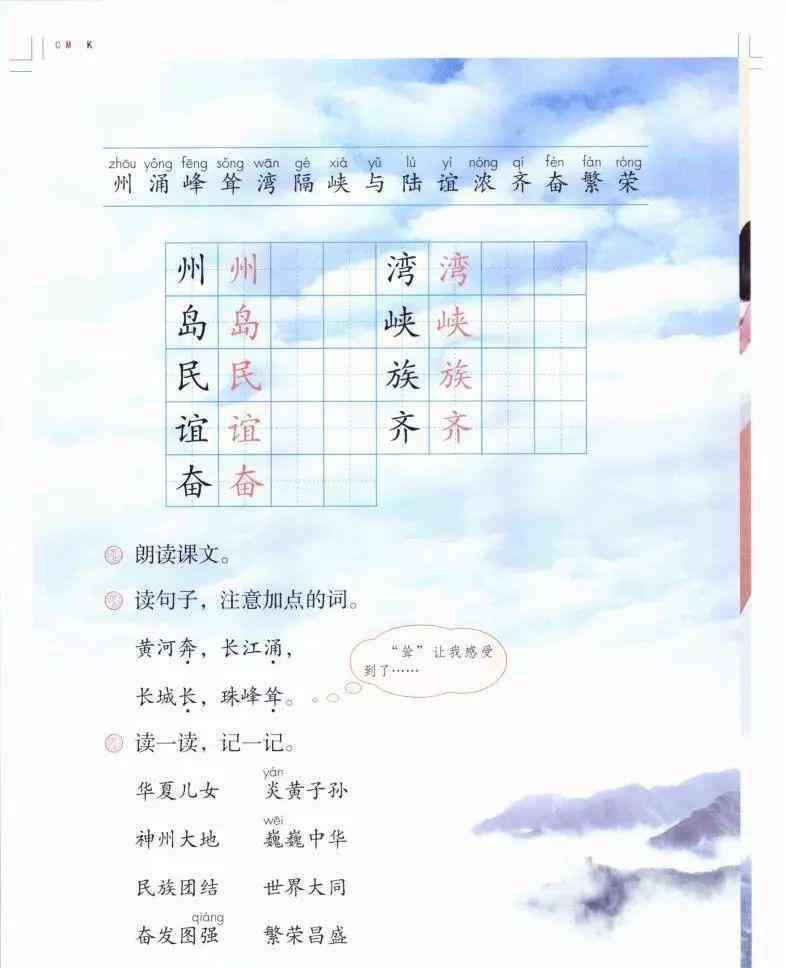 C M K
zhōu yǒng fēng sǒng wān gé xiá yǔ lù yì nóng qí fèn fán róng
州 涌 峰 耸 湾 隔 峡 与 陆 谊 浓 齐 奋 繁 荣
州 州 湾 湾
岛 岛 峡 峡
民 民 族 族
谊 谊 齐 齐
奋 奋
朗读课文。
读句子，注意加点的词。
黄河奔，长江涌，
长城长，珠峰耸。
“耸”让我感受
到了……
读一读，记一记。
yán
华夏儿女 炎黄子孙
wēi
神州大地 巍巍中华
民族团结 世界大同
qiáng
奋发图强 繁荣昌盛